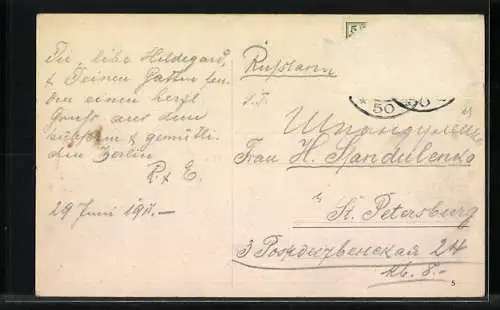 Dir, liebe Hildegard,
& Deinen Gatten sen-
den einen herzl.
Gruss aus dem
schönen & gemütli-
chen Berlin
P. & E.
29 Juni 191.–
5
Russland
* 50
50
S. T.
Шпандуленко
Frau H. Spandulenko
St. Petersburg
3 Рождественская 24
кв. 8.–
5